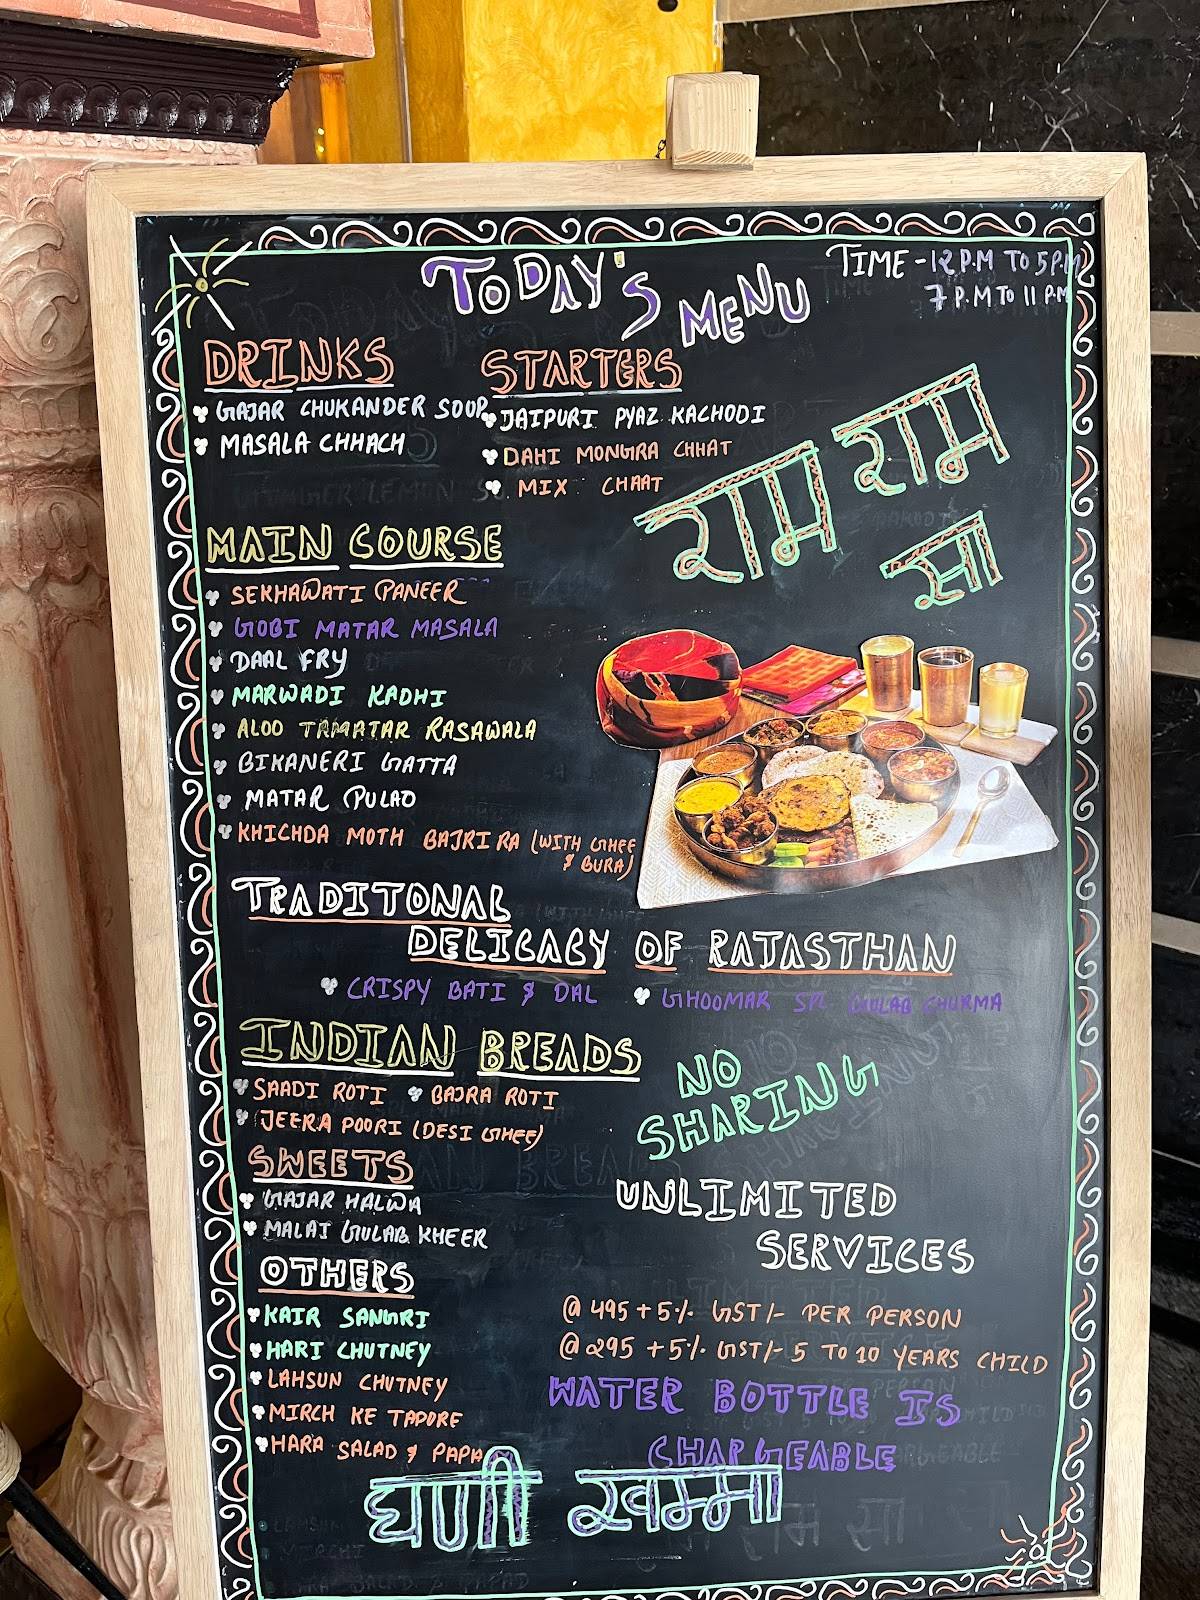 TODAY'S MENU
TIME - 12 P.M TO 5 P.M
7 P.M TO 11 P.M
DRINKS
GAJAR CHUKANDER SOUP
MASALA CHHACH
STARTERS
JAIPURI PYAZ KACHODI
DAHI MONGRA CHHAT
MIX CHAAT
राम राम
सा
MAIN COURSE
SEKHAWATI PANEER
GOBI MATAR MASALA
DAAL FRY
MARWADI KADHI
ALOO TAMATAR RASAWALA
BIKANERI GATTA
MATAR PULAO
KHICHDA MOTH BAJRI RA (WITH GHEE
& BURA)
TRADITONAL
DELICACY OF RAJASTHAN
CRISPY BATI & DAL
GHOOMAR SPL GULAB CHURMA
INDIAN BREADS
SAADI ROTI BAJRA ROTI
JEERA POORI (DESI GHEE)
NO
SHARING
SWEETS
GAJAR HALWA
MALAI GULAB KHEER
UNLIMITED
SERVICES
OTHERS
KAIR SANGRI
HARI CHUTNEY
LAHSUN CHUTNEY
MIRCH KE TAPORE
HARA SALAD & PAPA
@ 495 + 5% GST/- PER PERSON
@ 295 + 5% GST/- 5 TO 10 YEARS CHILD
WATER BOTTLE IS
CHARGEABLE
घणी खम्मा